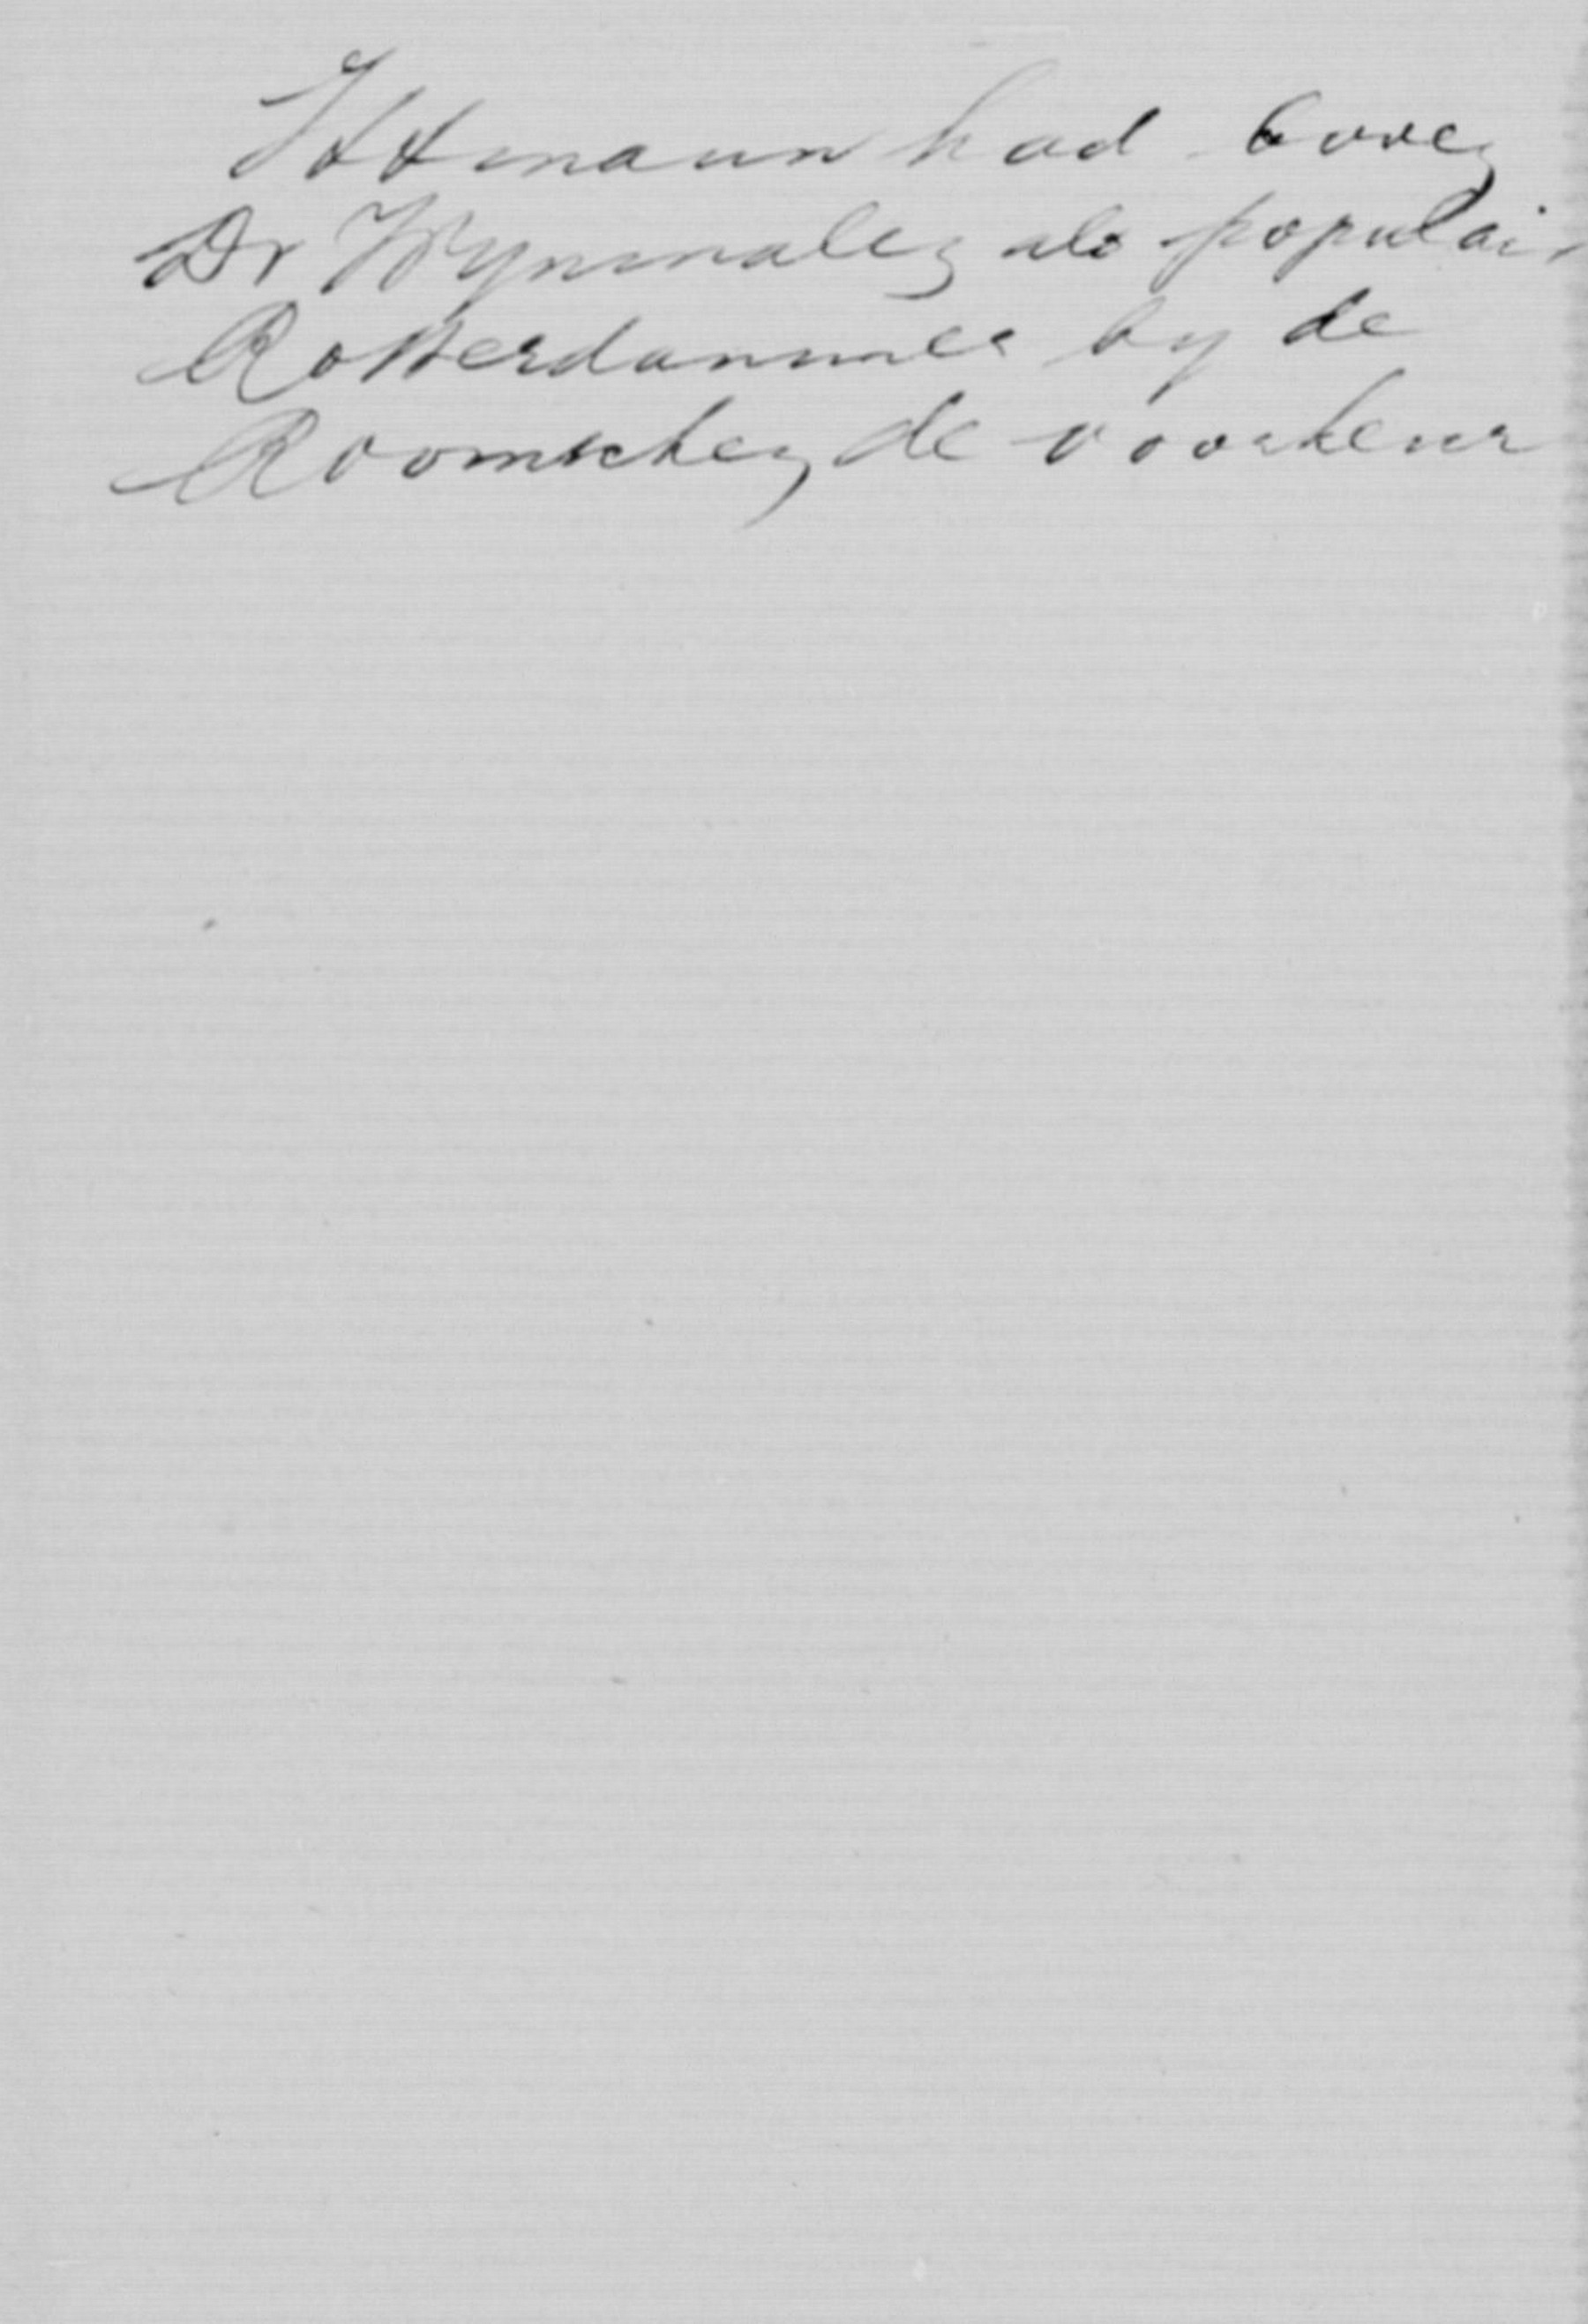 Ittmann had boven
Dr Wynmalen als populair
Rotterdammer by de
Roomschen de voorkeur